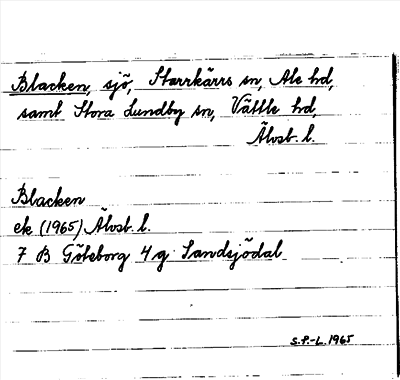 Blacken, sjö, Starrkärrs sn, Ale hd,
samt Stora Lundby sn, Vättle hd,
Älvsb. l.
Blacken
ek (1965) Älvsb. l.
7 B Göteborg 4 g Sandsjödal
S.P.-L. 1965